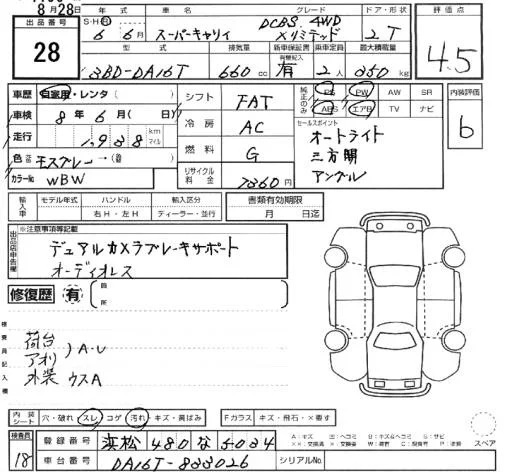 8月28日
出品番号
28
年式 車名 グレード ドア・形状 評価点
S・H・R 6年 6月 スーパーキャリイ DCBS.4WD Xリミテッド 2T 4.5
型式 排気量 新車保証書 乗車定員 最大積載量
3BD-DA16T 660cc 有記録簿記入 有 2人 350kg
車歴 自家用・レンタ( )
車検 8年6月( 日)
走行 1,938 km マイル
色 モスグレー→( )
カラーNo. WBW
シフト FAT
冷房 AC
燃料 G
リサイクル料金 7860円
純正のみ PS PW AW SR
ABS エアB TV ナビ
内装評価 b
セールスポイント
オートライト
三方開
アングル
輸入車 モデル年式 ハンドル 輸入区分
年 右H・左H ディーラー・並行
書類有効期限
月 日迄
出品店申告欄
※注意事項等記載
デュアルカメラブレーキサポート
オーディオレス
修復歴 有 箇所
検査員記入欄
荷台
アオリ )A・U
外装 ウスA
内装シート 穴・破れ・スレ・コゲ・汚れ・キズ・黒ばみ
Fガラス キズ・飛石・×要す
検査員 18
登録番号 浜松 480 な 5034
車台番号 DA16T-833026
シリアルNo.
スペア